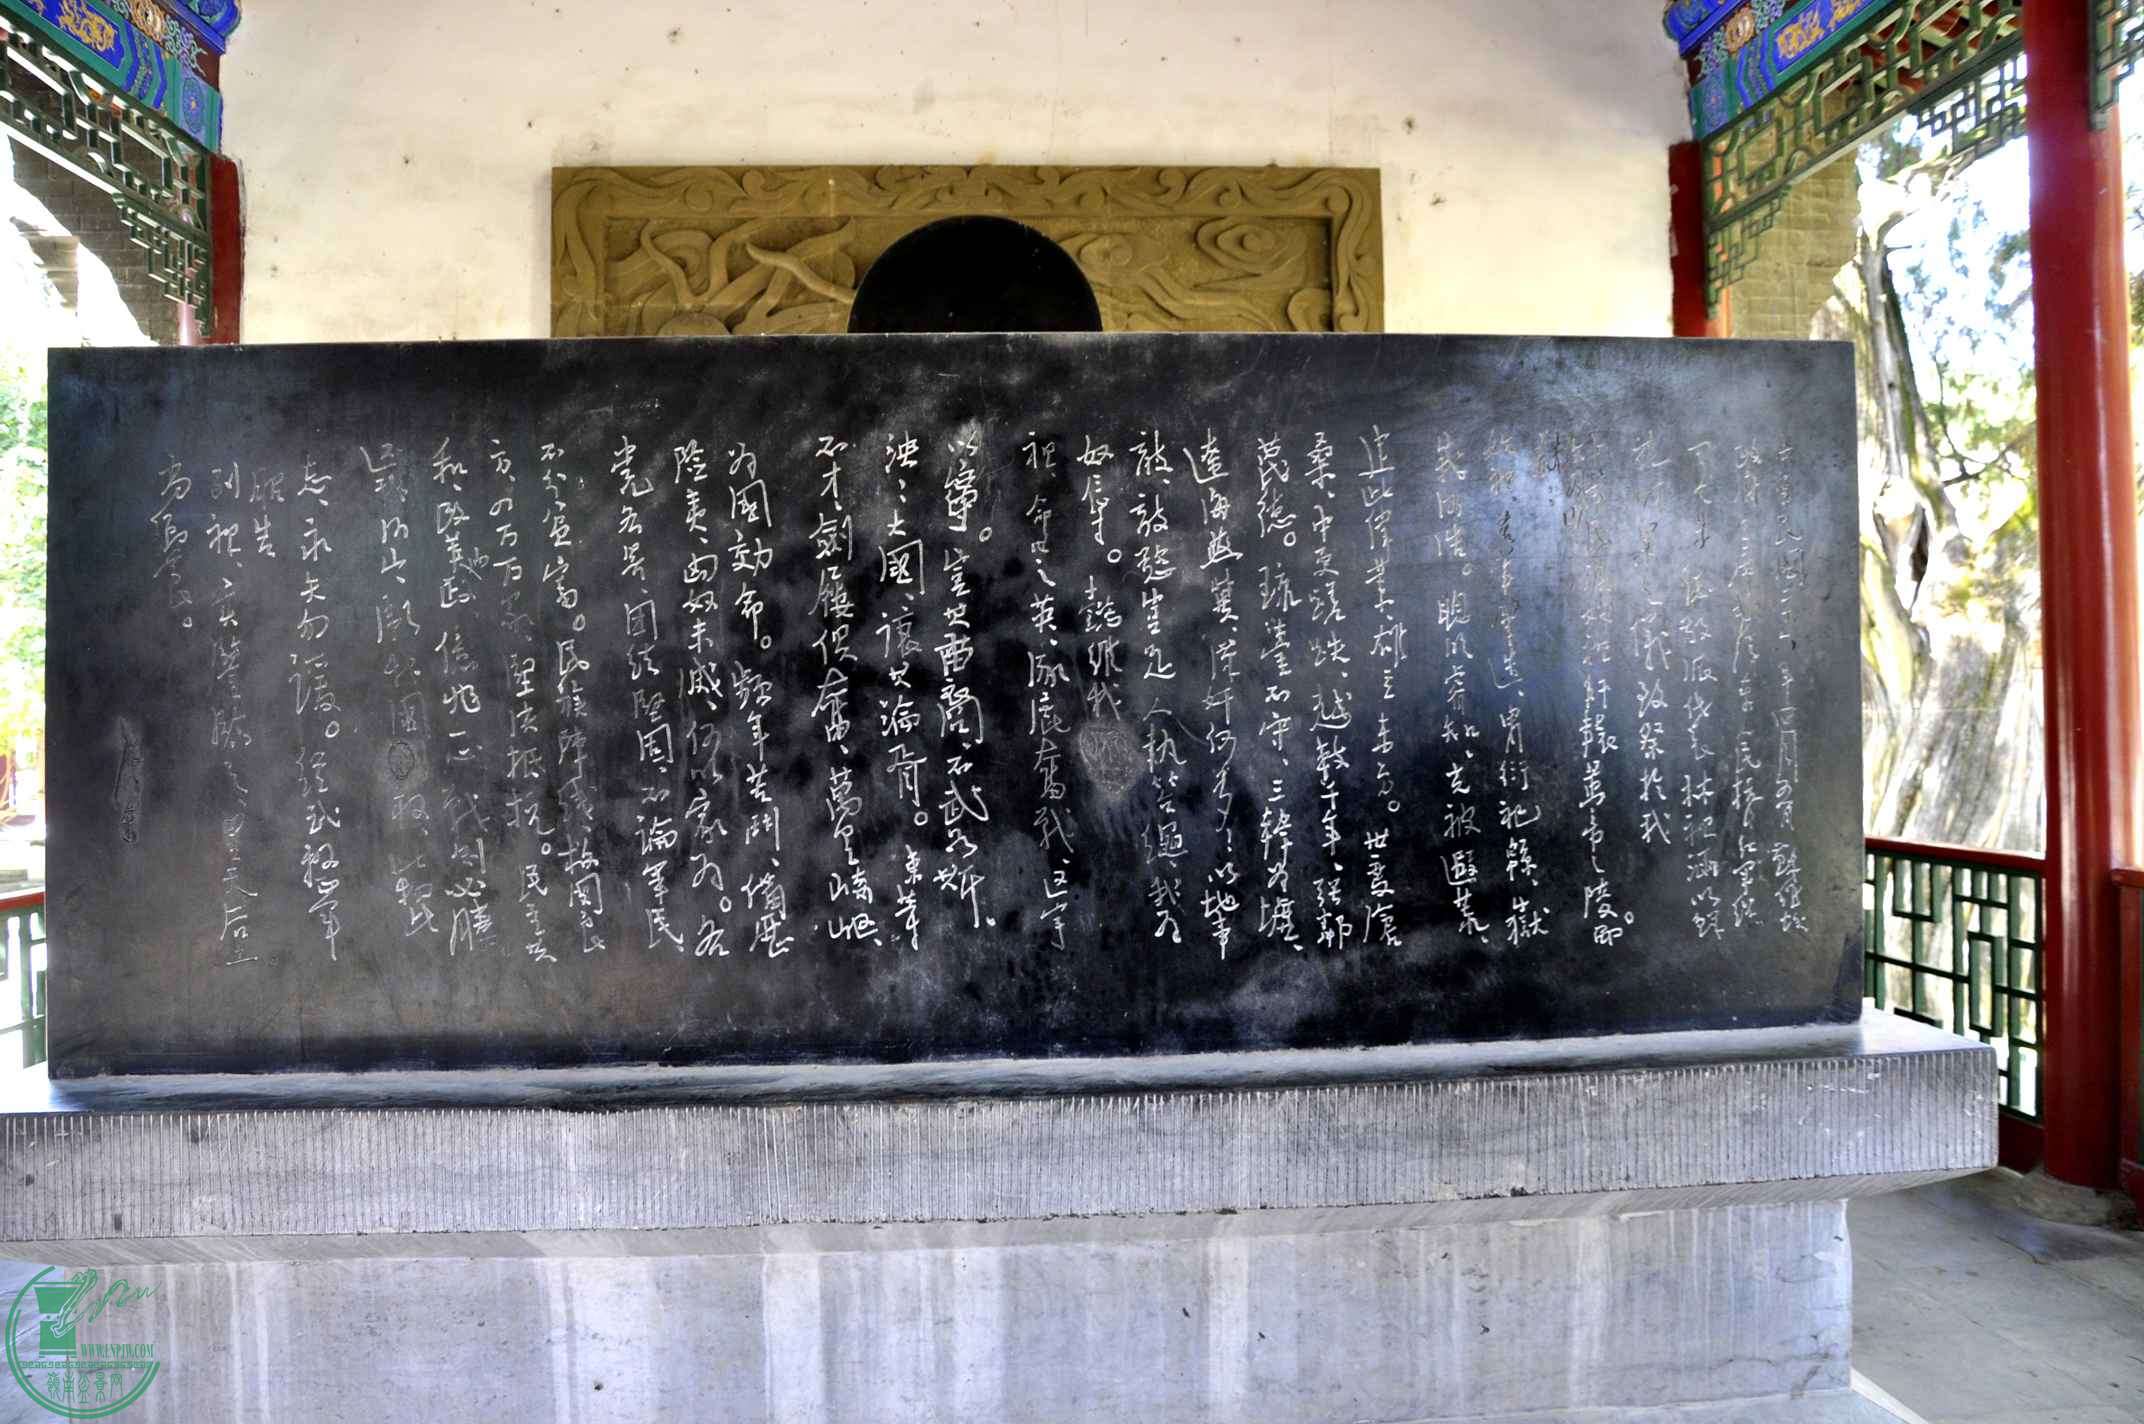 维中华民国二十六年四月五日，苏维埃
政府主席毛泽东、人民抗日红军总
司令朱德敬派代表林祖涵，以鲜
花时果之仪致祭于我
中华民族始祖轩辕黄帝之陵。而
致词曰：
赫赫
始祖，吾华肇造，胄衍祀绵，岳
峨河浩。聪明睿知，光被遐荒，
建此伟业，雄立东方。世变沧
桑，中更蹉跌，越数千年，强邻
蔑德。琉台不守，三韩为墟，
辽海燕冀，汉奸何多！以地事
敌，敌欲岂足，人执笞绳，我为
奴辱。懿维我
祖，命世之英，涿鹿奋战，区宇
以宁。岂其苗裔，不武如斯，
泱泱大国，让其沦胥。东等
不才，剑屦俱奋，万里崎岖，
为国效命。频年苦斗，备历
险夷，匈奴未灭，何以家为。各
党各界，团结坚固，不论军民，
不分贫富。民族阵线，救国良
方，四万万众，坚决抵抗。民主共
和，改革内政，亿兆一心，战则必胜。
还我河山，卫我国权，此物此
志，永矢勿谖。经武整军，
昭告
列祖，实鉴临之，皇天后土。
尚飨。
WWW.LNPJW.COM
岭南盆景网